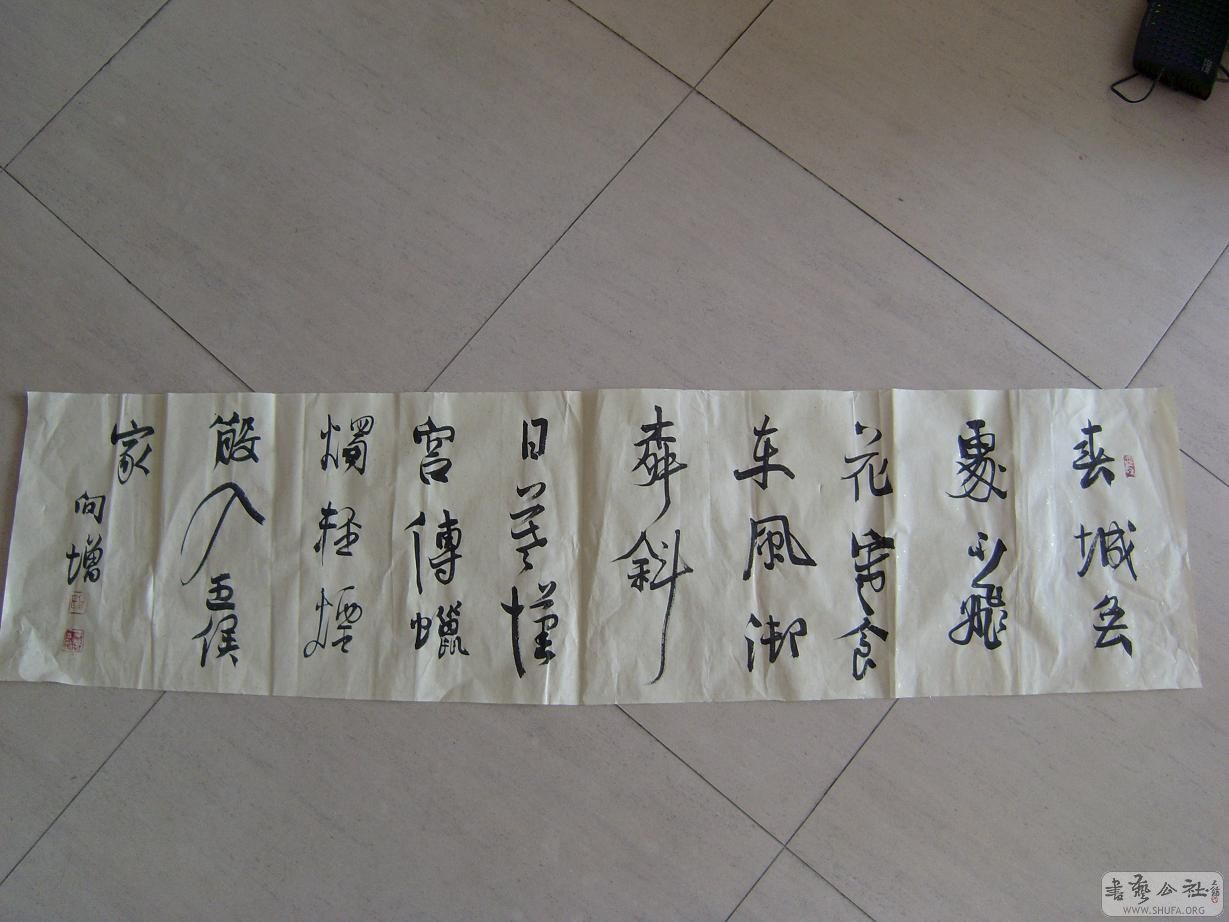 春城無
處不飛
花寒食
东風御
柳斜
日暮漢
宮傳蠟
燭輕煙
散入五侯
家
向增
書藝公社
WWW.SHUFA.ORG